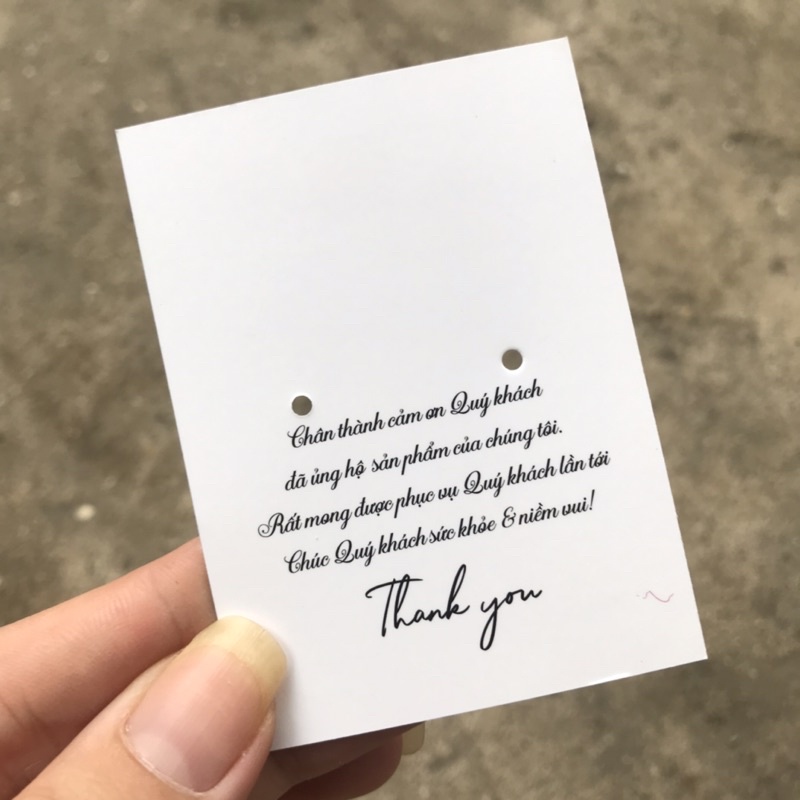 Chân thành cảm ơn Quý khách
đã ủng hộ sản phẩm của chúng tôi.
Rất mong được phục vụ Quý khách lần tới
Chúc Quý khách sức khỏe & niềm vui!
Thank you